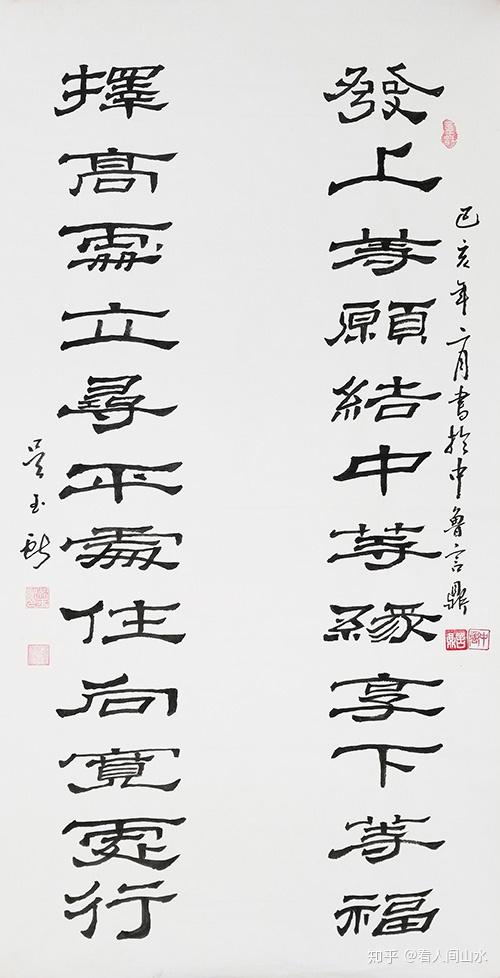 己亥年二月書於中魯言鼎
發上等願結中等緣享下等福
擇高處立尋平處住向寬處行
吴玉
知乎 @看人间山水